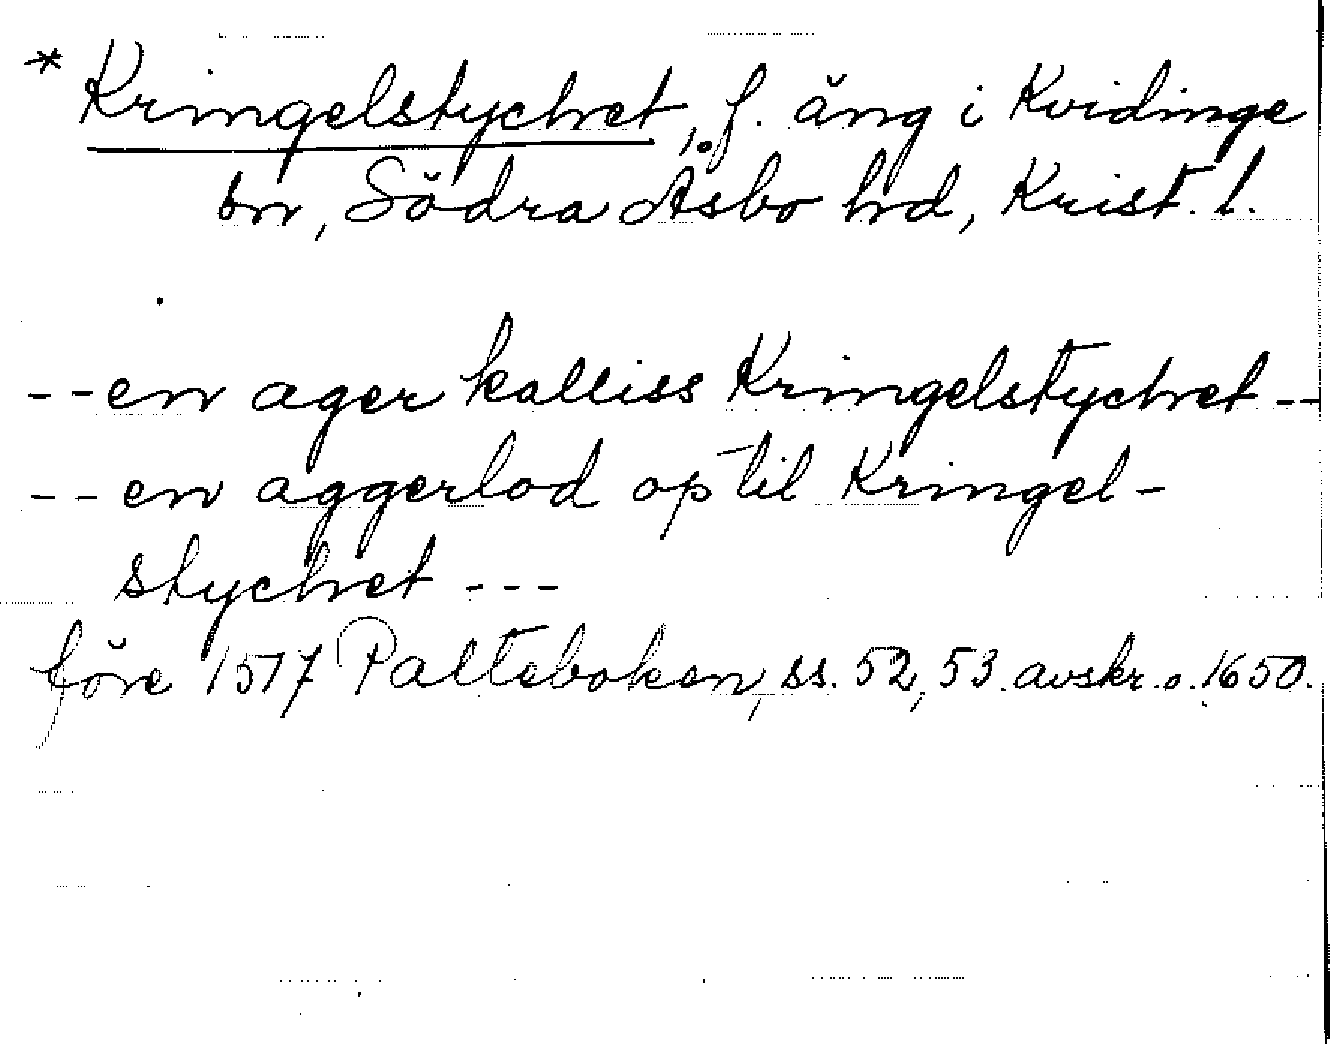 * Kringelstychet, f. äng i Kvidinge
sn, Södra Åsbo hd, Krist. l.
-- en ager kalliss Kringelstychet --
-- en aggerlod op til Kringel-
stychet ---
före 1517 Palteboken, ss. 52, 53. avskr. o. 1650.